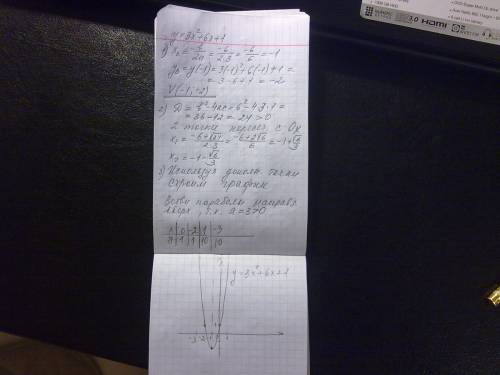 y=3x²+6x+1
1) x₀=-b/2a=-6/2·3=-6/6=-1
y₀=y(-1)=3(-1)²+6(-1)+1=
=3-6+1=-2
V(-1;-2)
2) D=b²-4ac=6²-4·3·1=
=36-12=24>0
2 точки пересеч. с Ox
x₁=-6+√24/2·3=-6+2√6/6=-1+√6/3
x₂=-1-√6/3
3) Используя дополн. точки
строим график
Ветви параболы направл.
вверх, т.к. a=3>0
x 0 -2 1 -3
y 1 1 10 10
y=3x²+6x+1
-3 -2 -1 1
HDMI
3.0